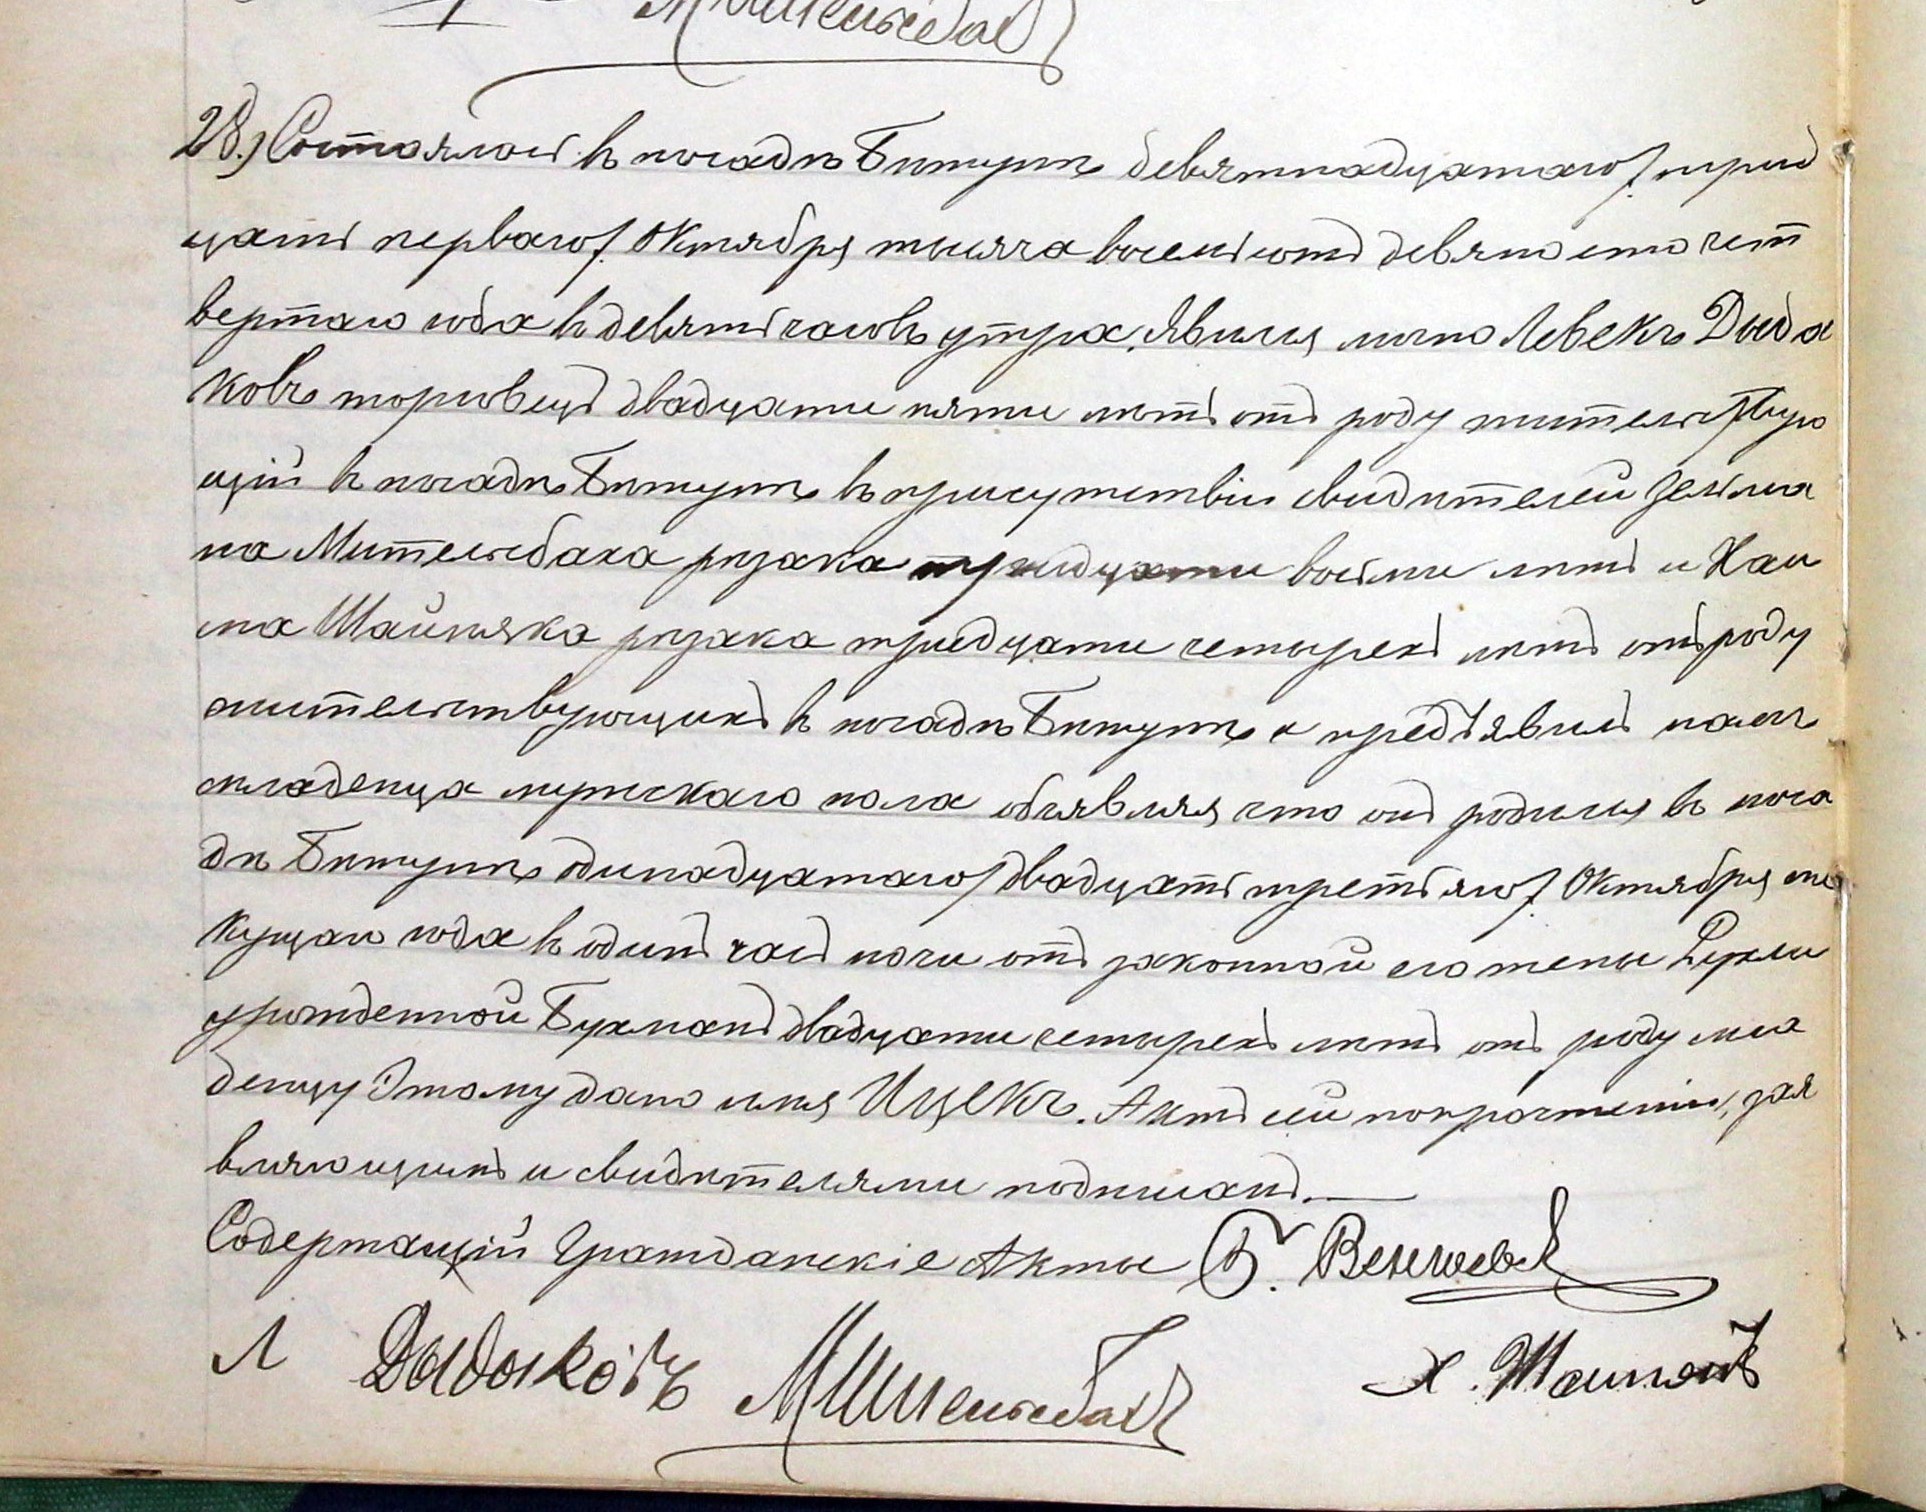 Мительсбах
28.) Состоялось въ посадѣ Бѣжунѣ девятнадцатаго/: трид
цать перваго/: Октября тысяча восемьсотъ девяносто чет
вертаго года въ девять часовъ утра. Явился лично Левекъ Дыда
ковъ торговецъ двадцати пяти лѣтъ отъ роду жительствую
щій въ посадѣ Бѣжунѣ въ присутствіи свидѣтелей Зельма
на Мительсбаха рѣзака тридцати восьми лѣтъ и Хаи
ма Шайняка рѣзака тридцати четырехъ лѣтъ отъ роду
жительствующихъ въ посадѣ Бѣжунѣ и предъявилъ намъ
младенца мужскаго пола объявляя что онъ родился въ поса
дѣ Бѣжунѣ одинадцатаго/двадцать третьяго/: Октября те
кущаго года въ одинъ часъ ночи отъ законной его жены Рухли
урожденной Бухманъ двадцати четырехъ лѣтъ отъ роду мла
денцу Этому дано имя Ицекъ. Актъ сей по прочтеніи, зая
вляющимъ и свидѣтелями подписанъ.
Содержащій Гражданскіе Акты Б.
Л Дыдаковъ Мительсбах Х. Шайнякъ